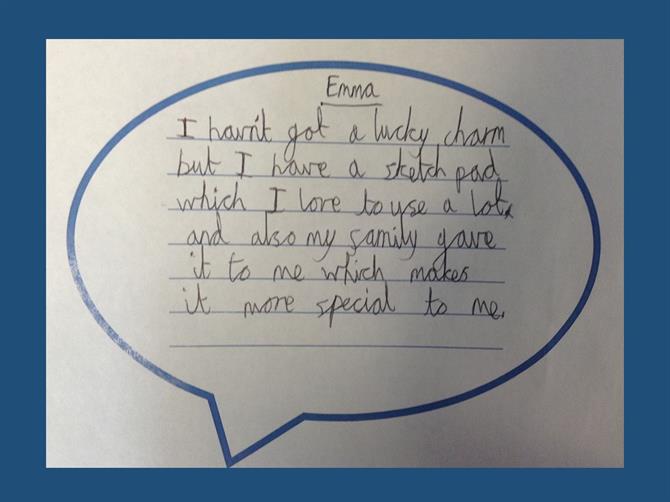 Emma
I havn't got a lucky charm
but I have a sketch pad
which I love to use a lot,
and also my family gave
it to me which makes
it more special to me.